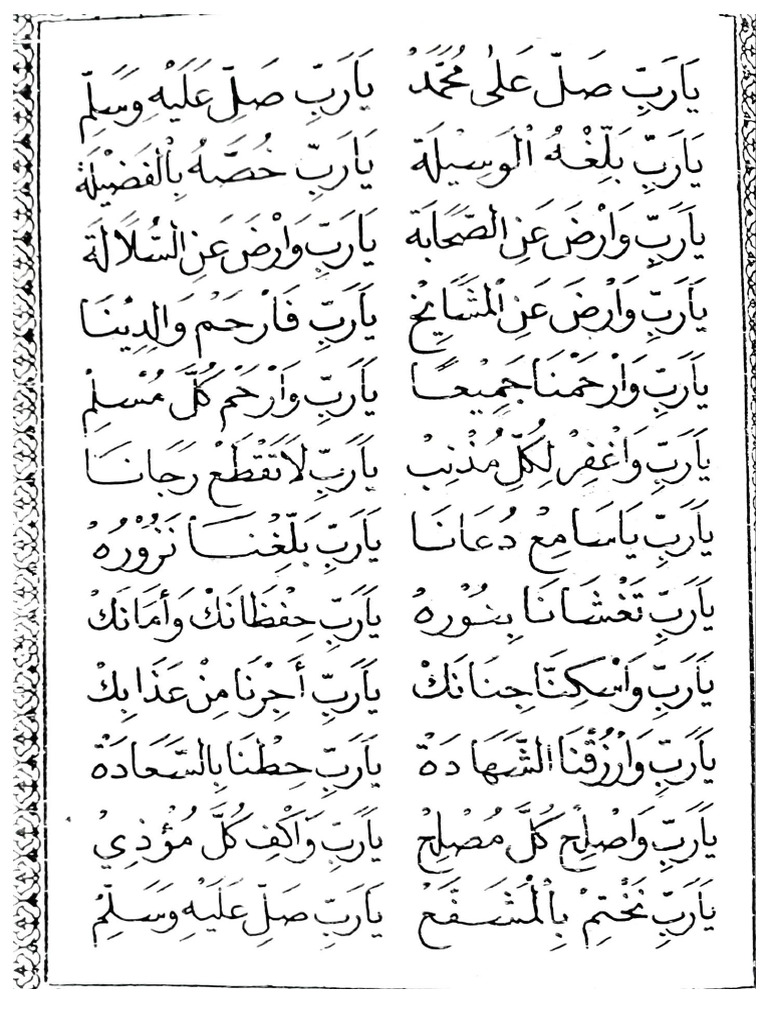 يَارَبِّ صَلِّ عَلٰى مُحَمَّدْ يَارَبِّ صَلِّ عَلَيْهِ وَسَلِّمْ
يَارَبِّ بَلِّغْهُ الْوَسِيْلَةَ يَارَبِّ خُصَّهُ بِالْفَضِيْلَةَ
يَارَبِّ وَارْضَ عَنِ الصَّحَابَةَ يَارَبِّ وَارْضَ عَنِ السُّلَالَةَ
يَارَبِّ وَارْضَ عَنِ الْمَشَايِخْ يَارَبِّ فَارْحَمْ وَالِدِيْنَا
يَارَبِّ وَارْحَمْنَا جَمِيْعًا يَارَبِّ وَارْحَمْ كُلَّ مُسْلِمْ
يَارَبِّ وَاغْفِرْ لِكُلِّ مُذْنِبْ يَارَبِّ لَاتَقْطَعْ رَجَانَا
يَارَبِّ يَاسَامِعْ دُعَانَا يَارَبِّ بَلِّغْنَا نَزُوْرُهْ
يَارَبِّ تَغْشَانَا بِنُوْرِهْ يَارَبِّ حِفْظَانَكْ وَأَمَانَكْ
يَارَبِّ وَاسْكِنَّا جِنَانَكْ يَارَبِّ أَجِرْنَا مِنْ عَذَابِكْ
يَارَبِّ وَارْزُقْنَا الشَّهَادَةْ يَارَبِّ حِطْنَا بِالسَّعَادَةْ
يَارَبِّ وَاصْلِحْ كُلَّ مُصْلِحْ يَارَبِّ وَاكْفِ كُلَّ مُؤْذِيْ
يَارَبِّ نَخْتِمْ بِالْمُشَفَّعْ يَارَبِّ صَلِّ عَلَيْهِ وَسَلِّمْ